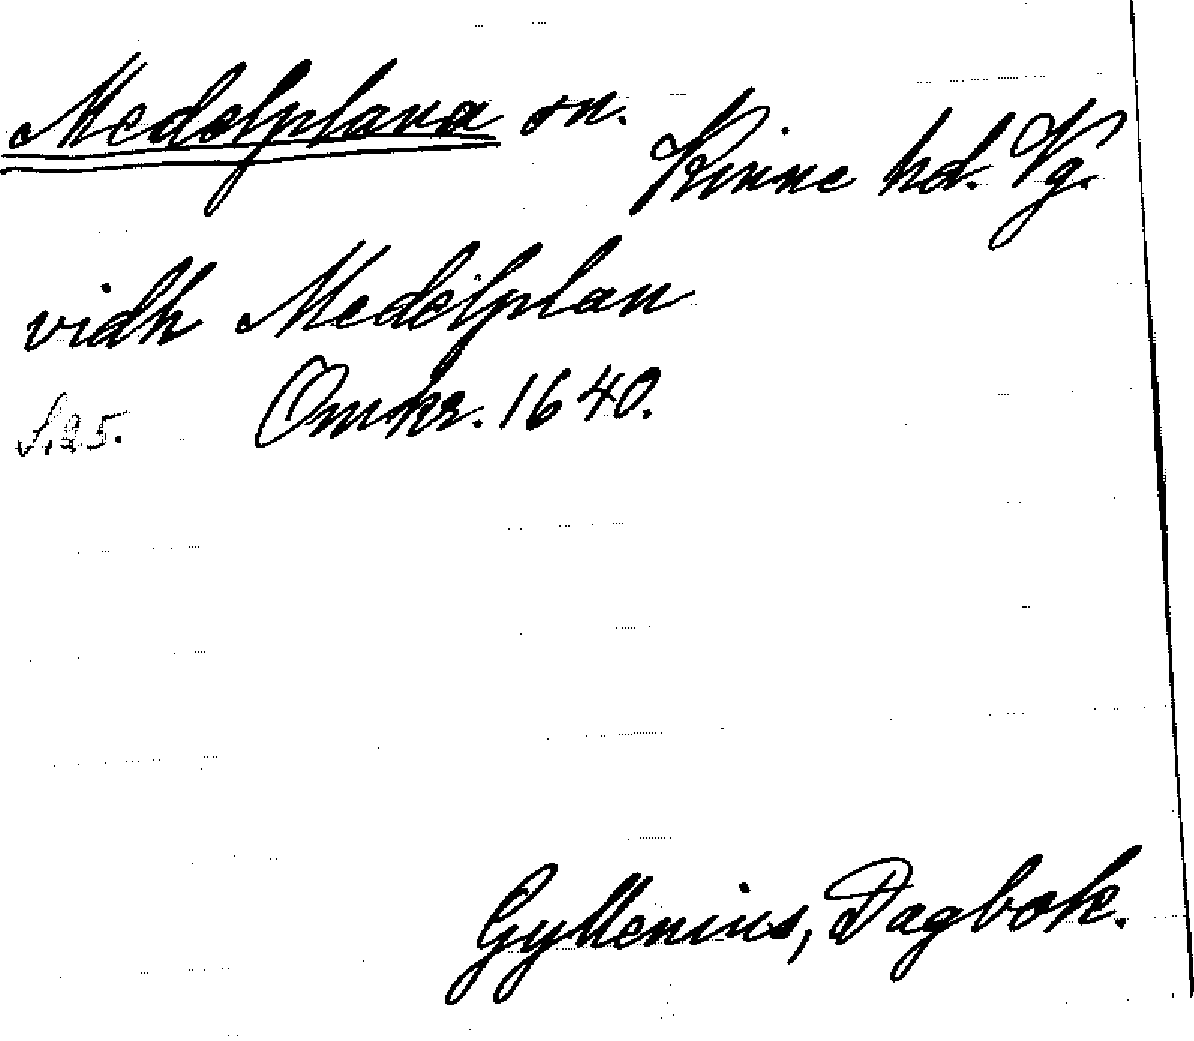 Medelplana sn.
Kinne hd. Vg.
vidh Medelplan
S. 25. Omkr. 1640.
Gyllenius, Dagbok.